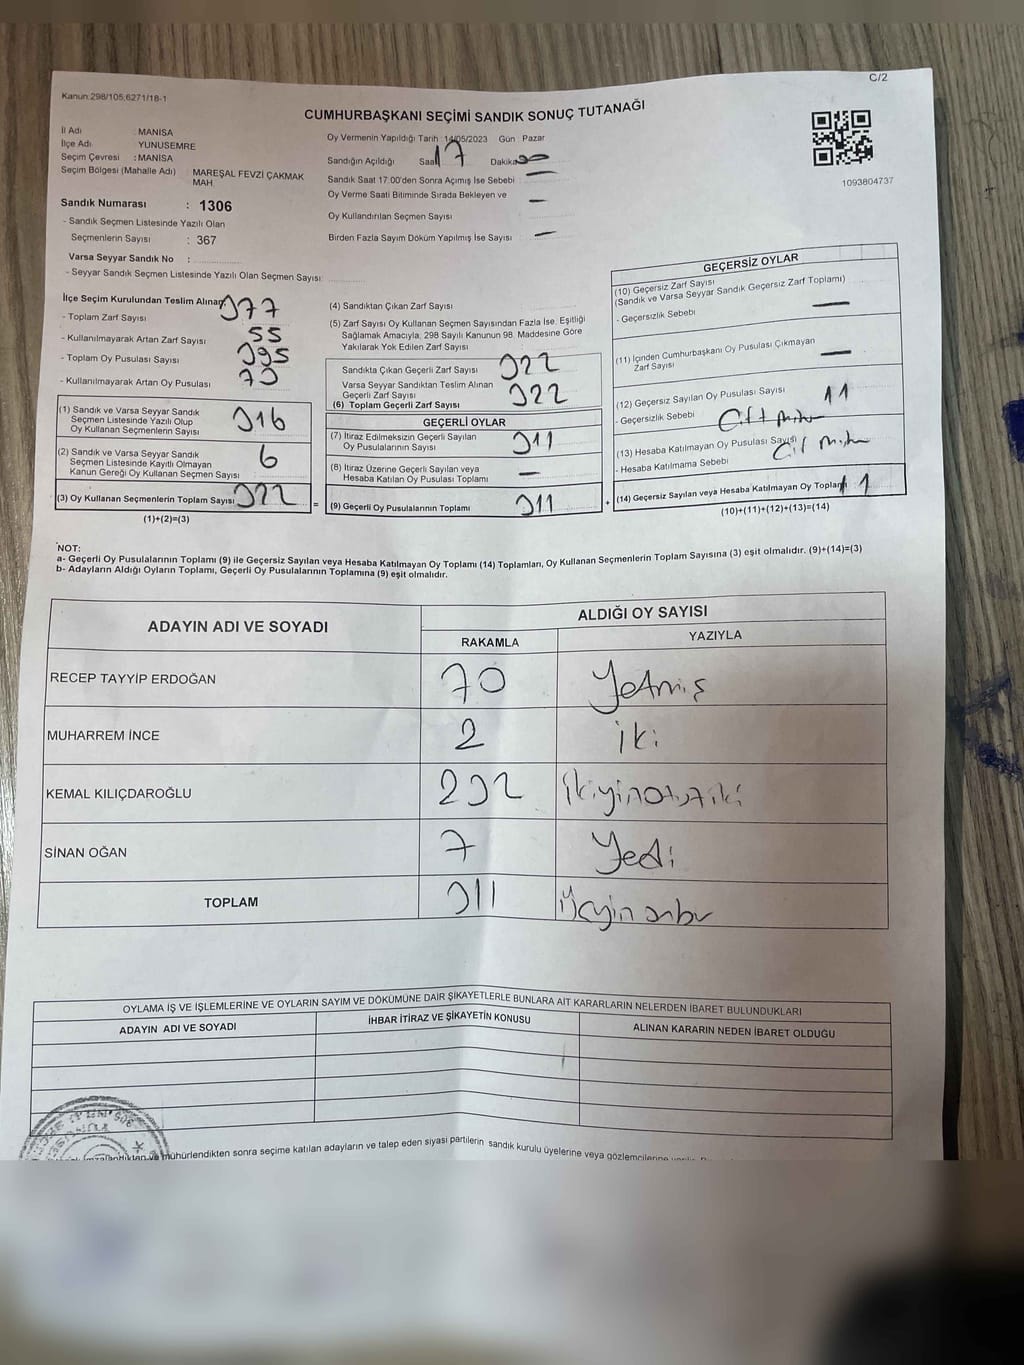 C/2
Kanun:298/105;6271/18-1
CUMHURBAŞKANI SEÇİMİ SANDIK SONUÇ TUTANAĞI
İl Adı : MANİSA
İlçe Adı : YUNUSEMRE
Seçim Çevresi : MANİSA
Seçim Bölgesi (Mahalle Adı) : MAREŞAL FEVZİ ÇAKMAK
MAH.
Sandık Numarası : 1306
- Sandık Seçmen Listesinde Yazılı Olan
Seçmenlerin Sayısı : 367
Varsa Seyyar Sandık No :
- Seyyar Sandık Seçmen Listesinde Yazılı Olan Seçmen Sayısı:
Oy Vermenin Yapıldığı Tarih 14/05/2023 Gün Pazar
Sandığın Açıldığı Saat 17 Dakika 00
Sandık Saat 17:00'den Sonra Açımış İse Sebebi : —
Oy Verme Saati Bitiminde Sırada Bekleyen ve
Oy Kullandırılan Seçmen Sayısı —
Birden Fazla Sayım Döküm Yapılmış İse Sayısı —
1093804737
İlçe Seçim Kurulundan Teslim Alınan
- Toplam Zarf Sayısı 377
- Kullanılmayarak Artan Zarf Sayısı 55
- Toplam Oy Pusulası Sayısı 395
- Kullanılmayarak Artan Oy Pusulası 73
(1) Sandık ve Varsa Seyyar Sandık
Seçmen Listesinde Yazılı Olup
Oy Kullanan Seçmenlerin Sayısı 316
(2) Sandık ve Varsa Seyyar Sandık
Seçmen Listesinde Kayıtlı Olmayan
Kanun Gereği Oy Kullanan Seçmen Sayısı 6
(3) Oy Kullanan Seçmenlerin Toplam Sayısı 322 =
(1)+(2)=(3)
(4) Sandıktan Çıkan Zarf Sayısı
(5) Zarf Sayısı Oy Kullanan Seçmen Sayısından Fazla İse, Eşitliği
Sağlamak Amacıyla, 298 Sayılı Kanunun 98. Maddesine Göre
Yakılarak Yok Edilen Zarf Sayısı
Sandıkta Çıkan Geçerli Zarf Sayısı 322
Varsa Seyyar Sandıktan Teslim Alınan
Geçerli Zarf Sayısı
(6) Toplam Geçerli Zarf Sayısı 322
GEÇERLİ OYLAR
(7) İtiraz Edilmeksizin Geçerli Sayılan
Oy Pusulalarının Sayısı 311
(8) İtiraz Üzerine Geçerli Sayılan veya
Hesaba Katılan Oy Pusulası Toplamı —
(9) Geçerli Oy Pusulalarının Toplamı 311 +
GEÇERSİZ OYLAR
(10) Geçersiz Zarf Sayısı
(Sandık ve Varsa Seyyar Sandık Geçersiz Zarf Toplamı)
- Geçersizlik Sebebi —
(11) İçinden Cumhurbaşkanı Oy Pusulası Çıkmayan
Zarf Sayısı —
(12) Geçersiz Sayılan Oy Pusulası Sayısı 11
- Geçersizlik Sebebi Çift
(13) Hesaba Katılmayan Oy Pusulası Sayısı
- Hesaba Katılmama Sebebi
(14) Geçersiz Sayılan veya Hesaba Katılmayan Oy Toplamı 11
(10)+(11)+(12)+(13)=(14)
NOT:
a- Geçerli Oy Pusulalarının Toplamı (9) ile Geçersiz Sayılan veya Hesaba Katılmayan Oy Toplamı (14) Toplamları, Oy Kullanan Seçmenlerin Toplam Sayısına (3) eşit olmalıdır. (9)+(14)=(3)
b- Adayların Aldığı Oyların Toplamı, Geçerli Oy Pusulalarının Toplamına (9) eşit olmalıdır.
ADAYIN ADI VE SOYADI ALDIĞI OY SAYISI
RAKAMLA YAZIYLA
RECEP TAYYİP ERDOĞAN 70 Yetmiş
MUHARREM İNCE 2 iki
KEMAL KILIÇDAROĞLU 232 ikiyüzotuziki
SİNAN OĞAN 7 Yedi
TOPLAM 311 Üçyüz onbir
OYLAMA İŞ VE İŞLEMLERİNE VE OYLARIN SAYIM VE DÖKÜMÜNE DAİR ŞİKAYETLERLE BUNLARA AİT KARARLARIN NELERDEN İBARET BULUNDUKLARI
ADAYIN ADI VE SOYADI İHBAR İTİRAZ VE ŞİKAYETİN KONUSU ALINAN KARARIN NEDEN İBARET OLDUĞU
mühürlendikten sonra seçime katılan adayların ve talep eden siyasi partilerin sandık kurulu üyelerine veya gözlemcilerine